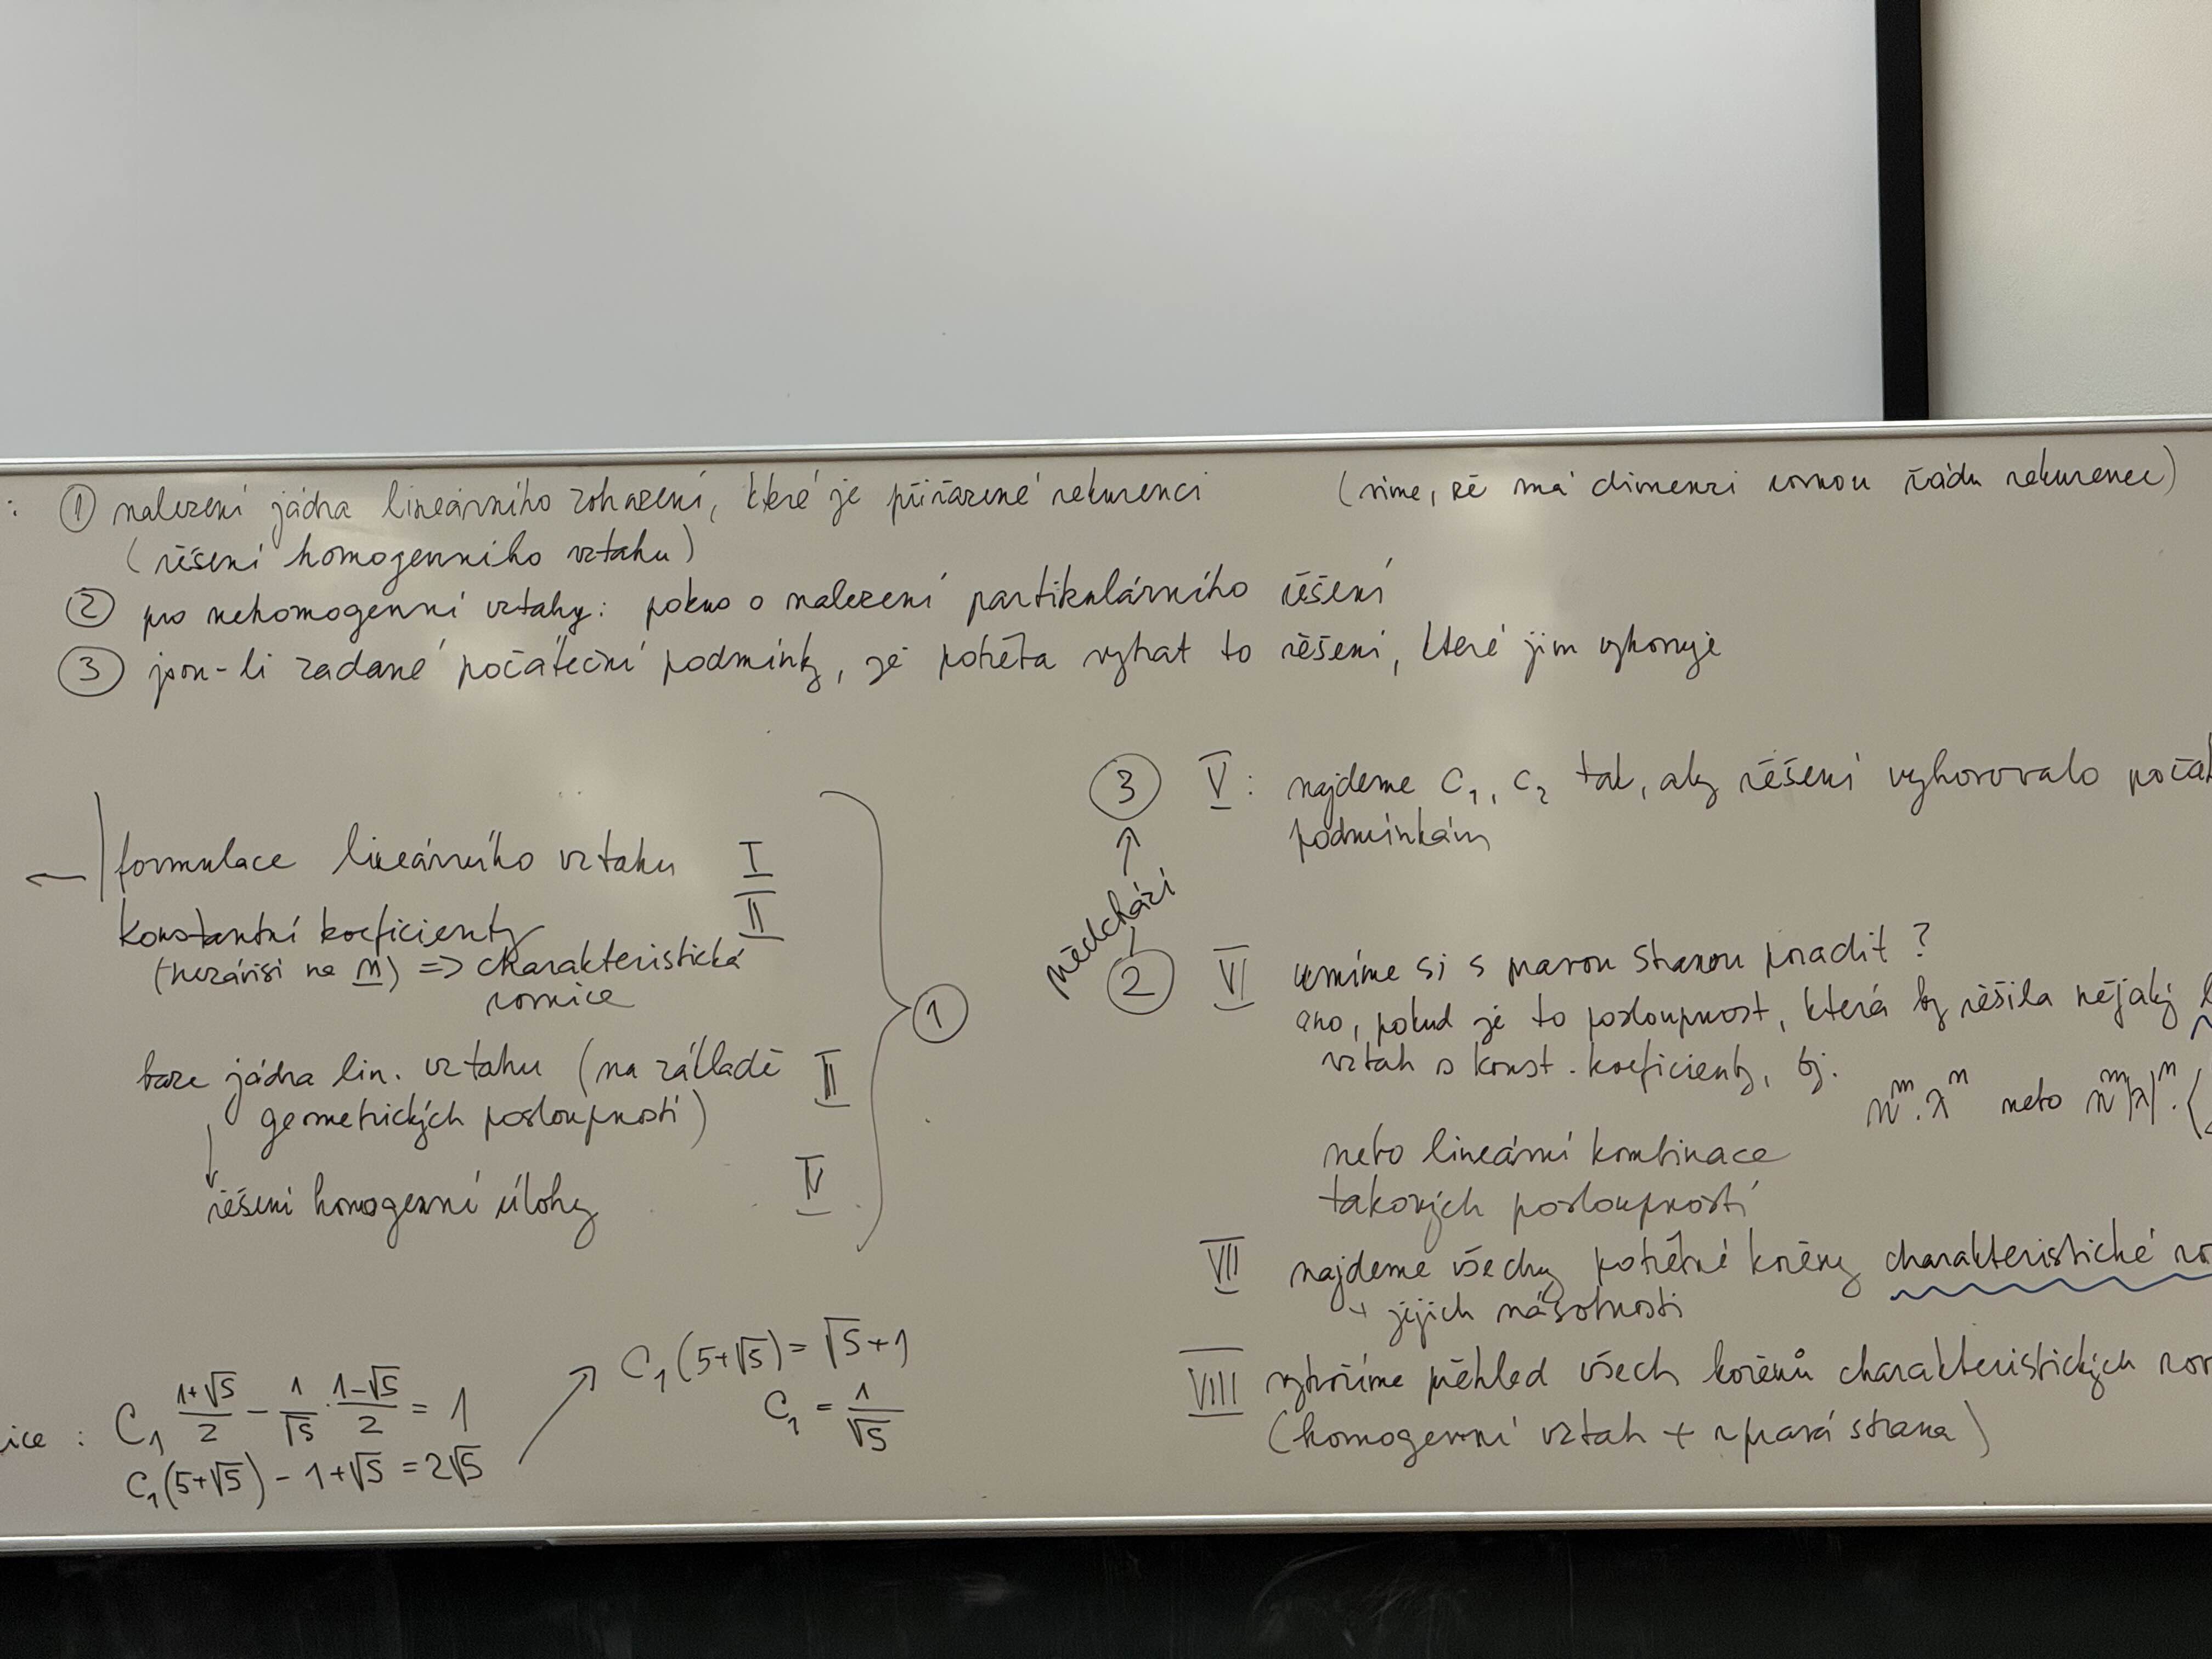 : ① nalezení jádra lineárního zobrazení, které je přiřazené rekurenci (víme, že má dimenzi rovnou řádu rekurence)
(řešení homogenního vztahu)
② pro nehomogenní vztahy: pokus o nalezení partikulárního řešení
③ jsou-li zadané počáteční podmínky, je potřeba vybrat to řešení, které jim vyhovuje
← formulace lineárního vztahu I
konstantní koeficienty II
(nezávisí na n) => charakteristická
rovnice
báze jádra lin. vztahu (na základě III
geometrických posloupností)
↓
řešení homogenní úlohy IV
①
ice : C₁ (1+√5)/2 - 1/√5 · (1-√5)/2 = 1
C₁(5+√5) - 1+√5 = 2√5
↗ C₁(5+√5) = √5+1
C₁ = 1/√5
③ V : najdeme C₁, C₂ tak, aby řešení vyhovovalo počát
podmínkám
↑
předchází
② VI umíme si s pravou stranou poradit?
ano, pokud je to posloupnost, která by řešila nějaký
vztah s konst. koeficienty, tj. n^m · λ^n nebo n^m |λ|^n · (
nebo lineární kombinace
takových posloupností
VII najdeme všechny potřebné kořeny charakteristické ro
+ jejich násobnosti
VIII vytvoříme přehled všech kořenů charakteristických rov
(homogenní vztah + pravá strana)